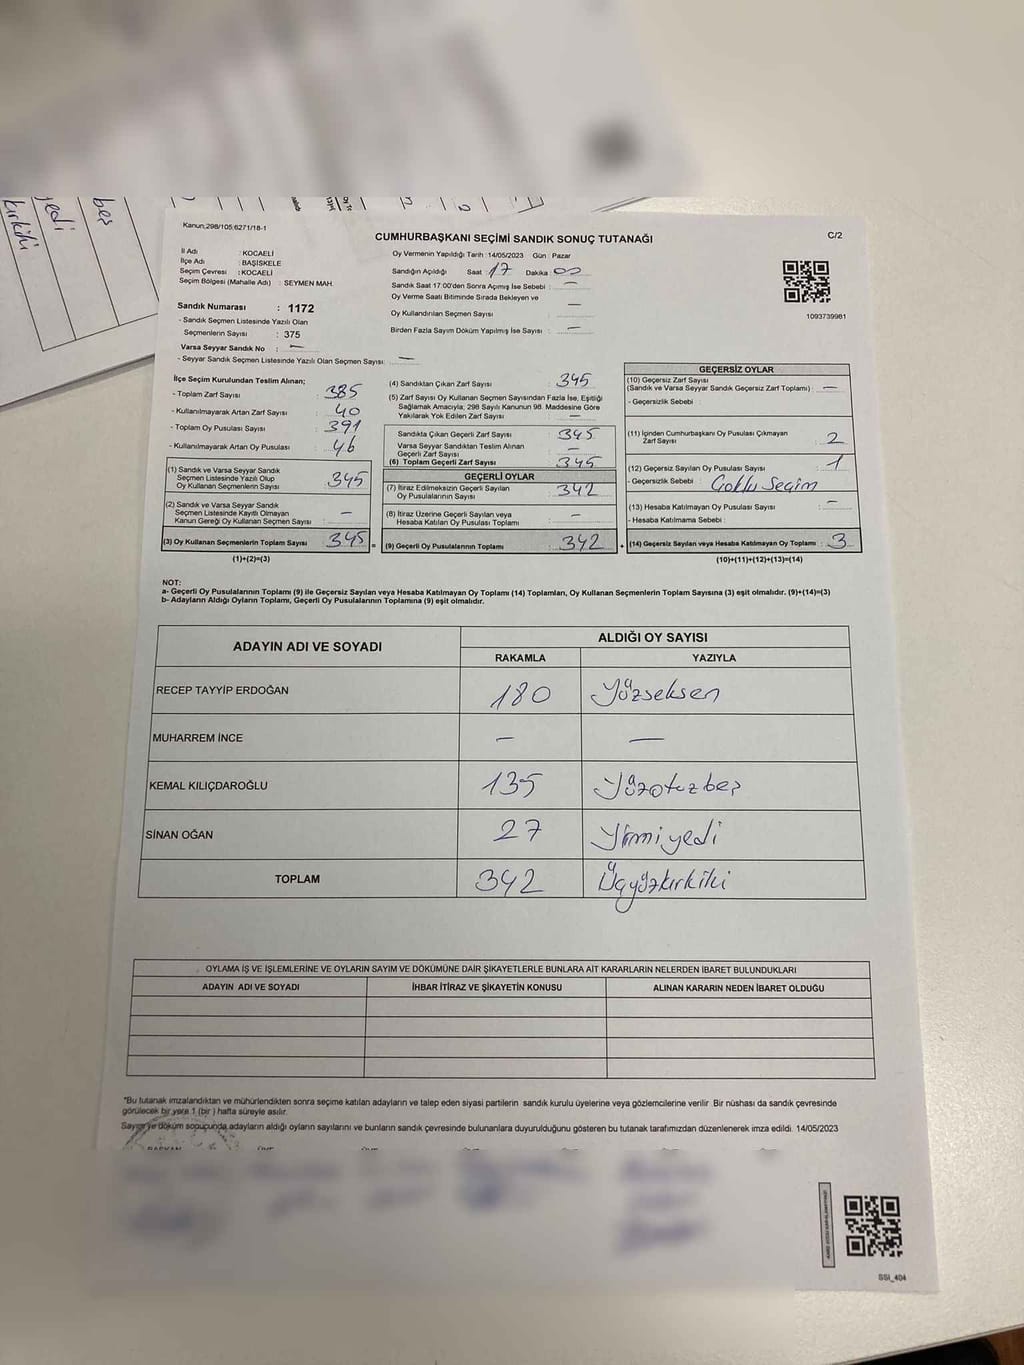 kırkiki
yedi
beş
Kanun:298/105;6271/18-1
CUMHURBAŞKANI SEÇİMİ SANDIK SONUÇ TUTANAĞI
C/2
İl Adı : KOCAELİ
İlçe Adı : BAŞİSKELE
Seçim Çevresi : KOCAELİ
Seçim Bölgesi (Mahalle Adı) : SEYMEN MAH.
Sandık Numarası : 1172
- Sandık Seçmen Listesinde Yazılı Olan
Seçmenlerin Sayısı : 375
Varsa Seyyar Sandık No : —
- Seyyar Sandık Seçmen Listesinde Yazılı Olan Seçmen Sayısı: —
Oy Vermenin Yapıldığı Tarih :14/05/2023 Gün : Pazar
Sandığın Açıldığı Saat : 17 Dakika : 00
Sandık Saat 17:00'den Sonra Açımış İse Sebebi : —
Oy Verme Saati Bitiminde Sırada Bekleyen ve —
Oy Kullandırılan Seçmen Sayısı :
Birden Fazla Sayım Döküm Yapılmış İse Sayısı : —
1093739981
İlçe Seçim Kurulundan Teslim Alınan;
- Toplam Zarf Sayısı : 385
- Kullanılmayarak Artan Zarf Sayısı : 40
- Toplam Oy Pusulası : 391
- Kullanılmayarak Artan Oy Pusulası : 46
(1) Sandık ve Varsa Seyyar Sandık
Seçmen Listesinde Yazılı Olup
Oy Kullanan Seçmenlerin Sayısı : 345
(2) Sandık ve Varsa Seyyar Sandık
Seçmen Listesinde Kayıtlı Olmayan
Kanun Gereği Oy Kullanan Seçmen Sayısı : —
(3) Oy Kullanan Seçmenlerin Toplam Sayısı : 345 =
(1)+(2)=(3)
(4) Sandıktan Çıkan Zarf Sayısı : 345
(5) Zarf Sayısı Oy Kullanan Seçmen Sayısından Fazla İse, Eşitliği
Sağlamak Amacıyla; 298 Sayılı Kanunun 98. Maddesine Göre
Yakılarak Yok Edilen Zarf Sayısı : —
Sandıkta Çıkan Geçerli Zarf Sayısı : 345
Varsa Seyyar Sandıktan Teslim Alınan
Geçerli Zarf Sayısı : —
(6) Toplam Geçerli Zarf Sayısı : 345
GEÇERLİ OYLAR
(7) İtiraz Edilmeksizin Geçerli Sayılan
Oy Pusulalarının Sayısı : 342
(8) İtiraz Üzerine Geçerli Sayılan veya
Hesaba Katılan Oy Pusulası Toplamı : —
(9) Geçerli Oy Pusulalarının Toplamı : 342 +
GEÇERSİZ OYLAR
(10) Geçersiz Zarf Sayısı
(Sandık ve Varsa Seyyar Sandık Geçersiz Zarf Toplamı) : —
- Geçersizlik Sebebi :
(11) İçinden Cumhurbaşkanı Oy Pusulası Çıkmayan
Zarf Sayısı : 2
(12) Geçersiz Sayılan Oy Pusulası Sayısı : 1
- Geçersizlik Sebebi : Çoklu Seçim
(13) Hesaba Katılmayan Oy Pusulası Sayısı : —
- Hesaba Katılmama Sebebi :
(14) Geçersiz Sayılan veya Hesaba Katılmayan Oy Toplamı : 3
(10)+(11)+(12)+(13)=(14)
NOT:
a- Geçerli Oy Pusulalarının Toplamı (9) ile Geçersiz Sayılan veya Hesaba Katılmayan Oy Toplamı (14) Toplamları, Oy Kullanan Seçmenlerin Toplam Sayısına (3) eşit olmalıdır. (9)+(14)=(3)
b- Adayların Aldığı Oyların Toplamı, Geçerli Oy Pusulalarının Toplamına (9) eşit olmalıdır.
ADAYIN ADI VE SOYADI ALDIĞI OY SAYISI
RAKAMLA YAZIYLA
RECEP TAYYİP ERDOĞAN 180 Yüzseksen
MUHARREM İNCE — —
KEMAL KILIÇDAROĞLU 135 Yüzotuzbeş
SİNAN OĞAN 27 Yirmiyedi
TOPLAM 342 Üçyüzkırkiki
OYLAMA İŞ VE İŞLEMLERİNE VE OYLARIN SAYIM VE DÖKÜMÜNE DAİR ŞİKAYETLERLE BUNLARA AİT KARARLARIN NELERDEN İBARET BULUNDUKLARI
ADAYIN ADI VE SOYADI İHBAR İTİRAZ VE ŞİKAYETİN KONUSU ALINAN KARARIN NEDEN İBARET OLDUĞU
*Bu tutanak imzalandıktan ve mühürlendikten sonra seçime katılan adayların ve talep eden siyasi partilerin sandık kurulu üyelerine veya gözlemcilerine verilir. Bir nüshası da sandık çevresinde
görülecek bir yere 1 (bir ) hafta süreyle asılır.
Sayım ve döküm sonucunda adayların aldığı oyların sayılarını ve bunların sandık çevresinde bulunanlara duyurulduğunu gösteren bu tutanak tarafımızdan düzenlenerek imza edildi. 14/05/2023
BAŞKAN ÜYE ÜYE ÜYE ÜYE ÜYE
SSI_404